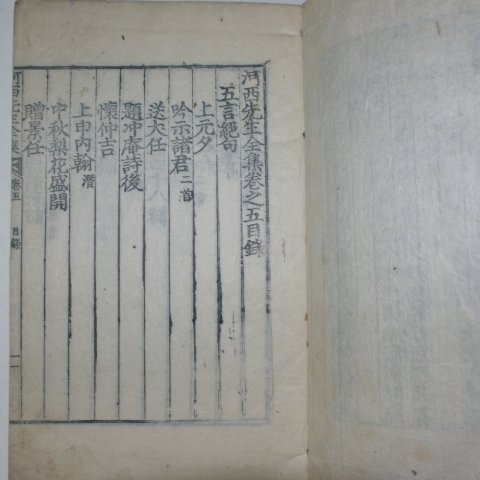 河西先生全集卷之五目錄
五言絕句
上元夕
吟示諸君 二首
送大任
題冲庵詩後
懷仲吉
上申內翰 潛
中秋梨花盛開
贈景任
河西先生全集 卷五 目錄 一